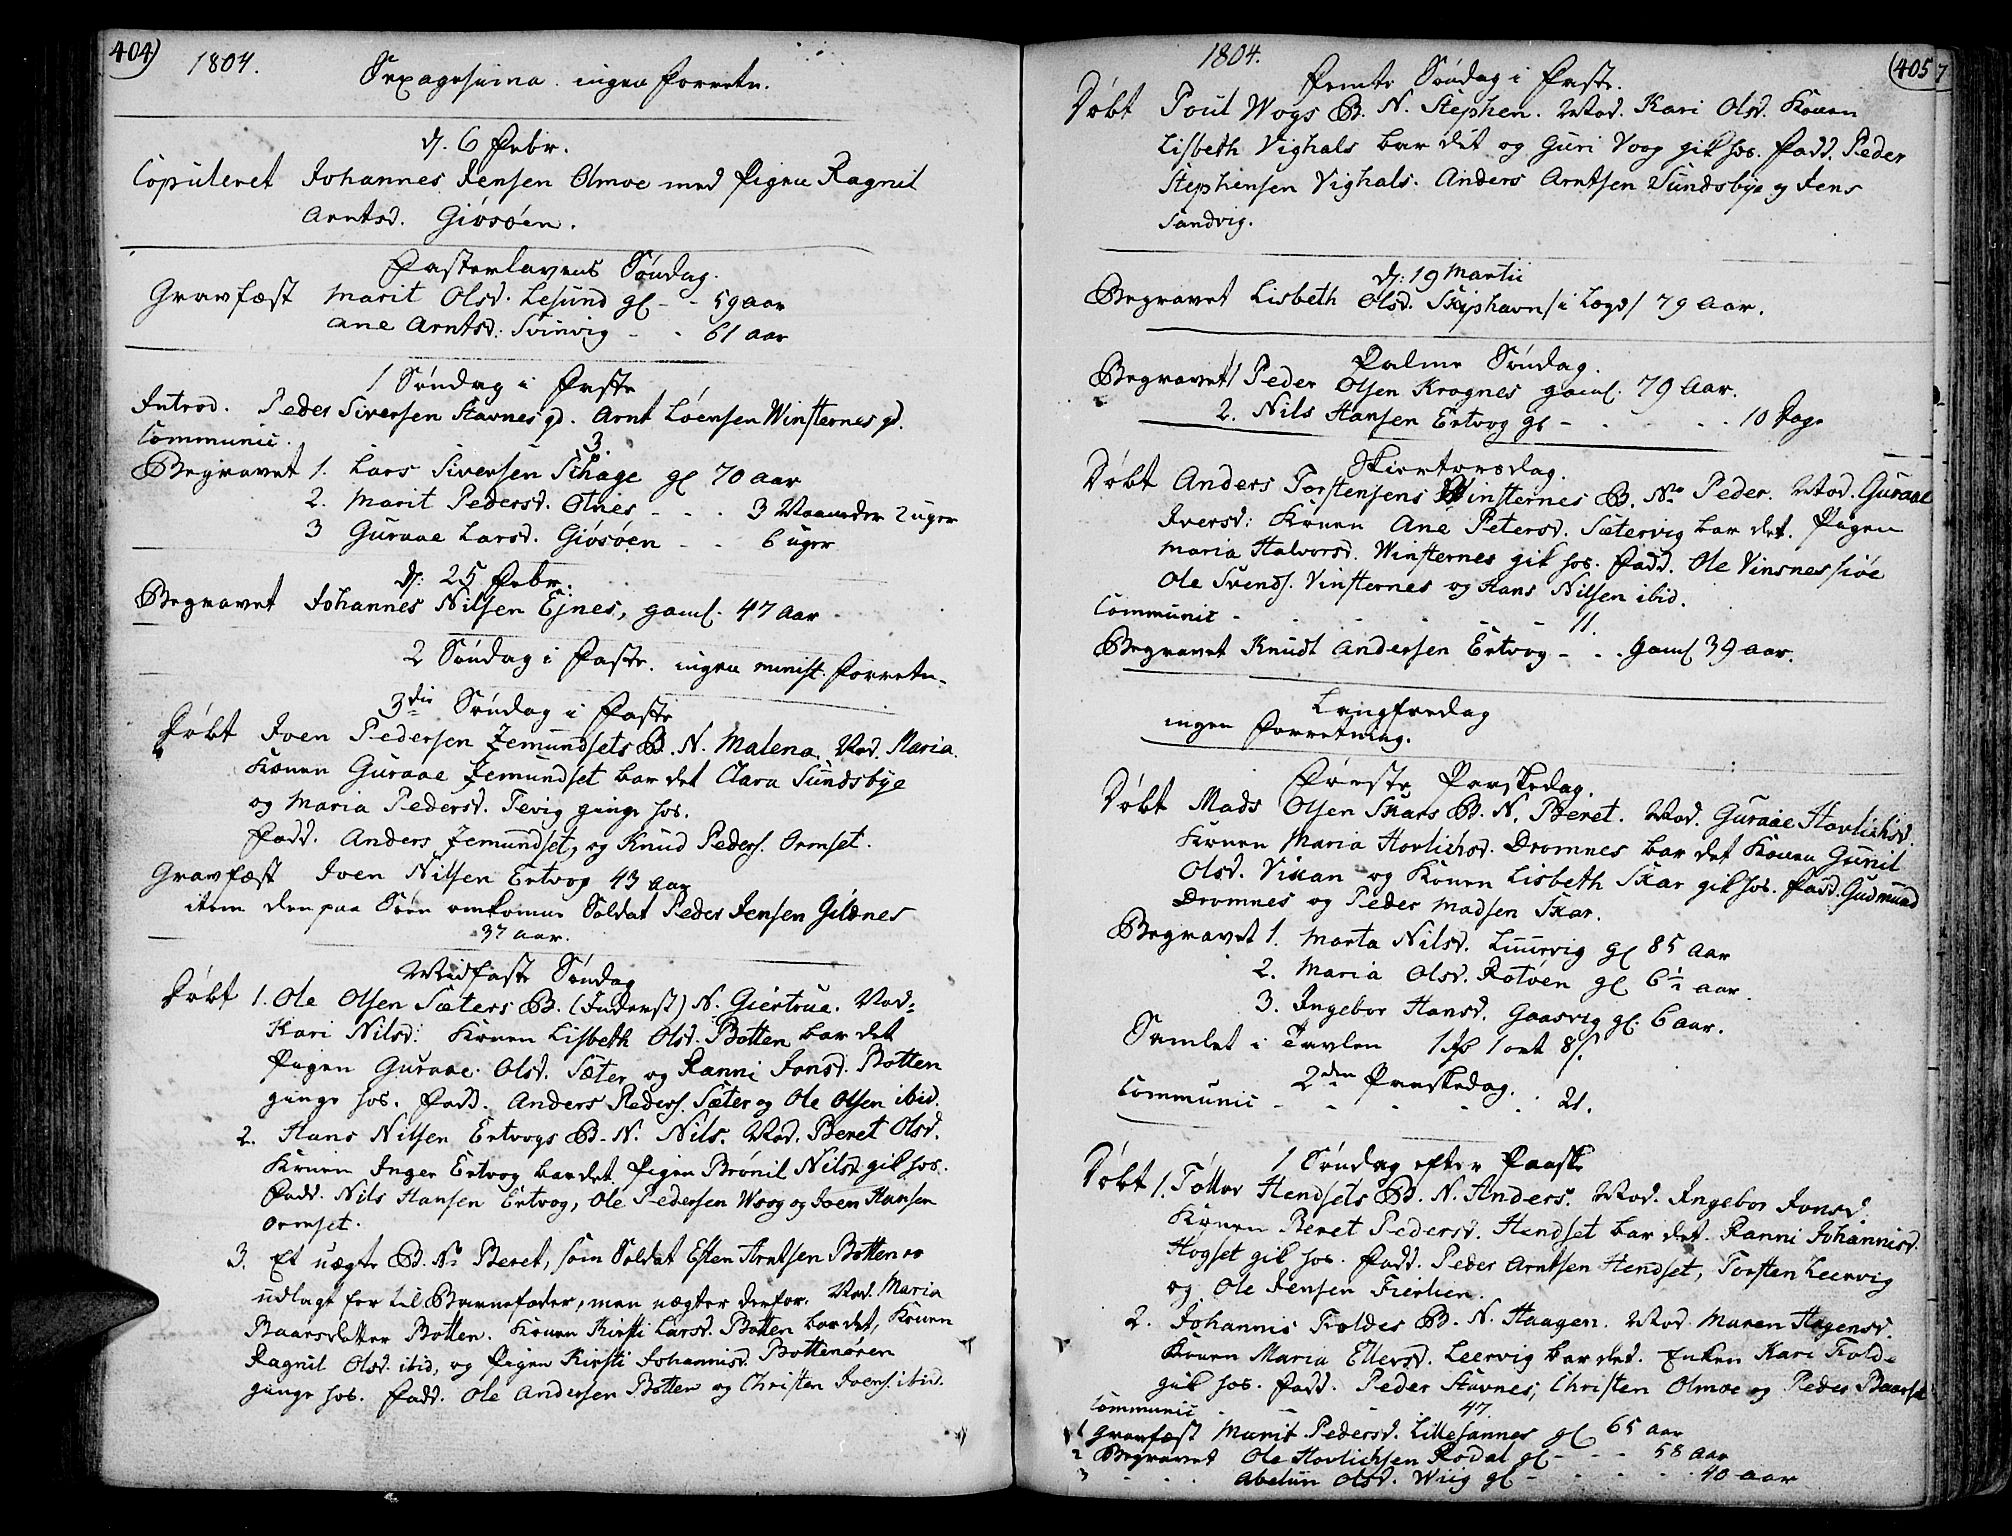 404)
1804.
Sexagesima ingen Forretn.
d. 6 Febr.
Copuleret Johannes Jensen Olmoe med Pigen Ragnil
Arntsd. Giösöen.
Fastelavens Söndag.
Gravfæst Marit Olsd. Lesund gl - - 59 aar
Ane Arntsd. Svinvig - - 61 aar
1 Söndag i Faste
Introd. Peder Siversen Stavnes qd. Arnt Löensen Winsternes qd.
Communic. 3.
Begravet 1. Lars Siversen Schage gl 70 aar
2. Marit Pedersd. Otnes - - - 3 Maaneder 2 uger
3 Guraae Larsd. Giösöen - - 6 uger
d: 25 Febr:
Begravet Johannes Nilsen Ejnes, gaml. 47 Aar
2 Söndag i Faste. ingen minist. Forretn.
3die Söndag i Faste
Döbt Joen Pedersen Jemundsets B. N. Malena. Mod. Maria.
Konen Guraae Jemundset bar det Clara Sundsbye
og Maria Pedersd. Tevig ginge hos.
Fadd. Anders Jemundset, og Knud Peders. Ormset.
Gravfæst Joen Nilsen Ertvog 43 aar
item den paa Söen omkomne Soldat Peder Jensen Gildnes
37 aar.
Midfaste Söndag
Döbt 1. Ole Olsen Sæters B. (Inderst) N. Giertrue. Mod.
Kari Nilsd: Konen Lisbeth Olsd. Botten bar det
Pigen Guraae Olsd. Sæter og Ranni Jonsd. Botten
ginge hos. Fadd. Anders Peders. Sæter og Ole Olsen ibid.
2. Hans Nilsen Ertvogs B. N. Nils. Mod. Beret Olsd.
Konen Inger Ertvog bar det Pigen Brönil Nilsd gik hos.
Fadd. Nils Hansen Ertvog, Ole Pedersen Woog og Joen Hansen
Ormset.
3. Et uægte B. N. Beret, som Soldat Esten Arntsen Botten er
udlagt for til Barnefader, men nægter derfor. Mod. Maria
Baarsdatter Botten. Konen Kirsti Larsd. Botten bar det, Konen
Ragnil Olsd. ibid, og Pigen Kirsti Johannisd. Bottenören
ginge hos. Fadd. Ole Andersen Botten og Christen Joens. ibid.
(405
1804.
Femte Söndag i Faste.
Döbt Poul Wogs B. N. Stephen. Mod. Kari Olsd. Konen
Lisbeth Vighals bar det og Guri Voog gik hos. Fadd. Peder
Stephensen Vighals. Anders Arntsen Sundsbye og Jens
Sandvig.
d: 19 Martii
Begravet Lisbeth Olsd. Skiphavn /i Lægd/ 79 Aar.
Palme Söndag.
Begravet 1 Peder Olsen Kragnes gaml. 79 Aar.
2. Nils Hansen Ertvog gl - - - - - 10 Dage
Skiertorsdag.
Döbt Anders Torstensens Winsternes B. N. Peder. Mod. Guraae
Iversd: Konen Ane Petersd. Sætervig bar det. Pigen
Maria Halvorsd. Winsternes gik hos. Fadd. Ole Vinsnessiöe
Ole Svends. Vinsternes og Hans Nilsen ibid.
Communic - - - - - 11.
Begravet Knudt Andersen Ertvog - - - Gaml 39 aar.
Langfredag
ingen Forretning.
Förste Paaskedag.
Döbt Mads Olsen Skars B. N. Beret. Mod. Guraae Hovlichsd.
Konen Maria Hovlichsd. Dromnes bar det Konen Gunil
Olsd. Vikan og Konen Lisbeth Skar gik hos. Fadd. Gudmund
Dromnes og Peder Madsen Skar.
Begravet 1. Marta Nilsd. Luurvig gl 85 aar
2. Maria Olsd. Rotöen gl 6½ aar.
3. Ingebor Hansd. Gaasvig gl. 6 aar.
Samlet i Tavlen 1 ort 8 s.
2den Paaskedag.
Communic - - - - - 21.
1 Söndag efter Paaske
Döbt 1. Tollov Hendsets B. N. Anders. Mod. Ingebor Jonsd.
Konen Beret Pedersd. Hendset bar det. Ranni Johannisd.
Hogset gik hos. Fadd. Peder Arntsen Hendset, Torsten Leervig
og Ole Jensen Fierlien.
2. Johannis Foldes B. N. Haagen. Mod. Maren Hagensd.
Konen Maria Ellersd. Leervig bar det. Enken Kari Fold-
gik hos. Fadd. Peder Stavnes, Christen Olmoe og Peder Baarset
Communic - - 47.
1 Gravfæst Marit Pedersd. Lillesannes gl 65 aar
2 Begravet Ole Hovlichsen Rodal gl - - - 58 aar
3 - - - Abelun Olsd. Wiig gl - - - - 40 aar